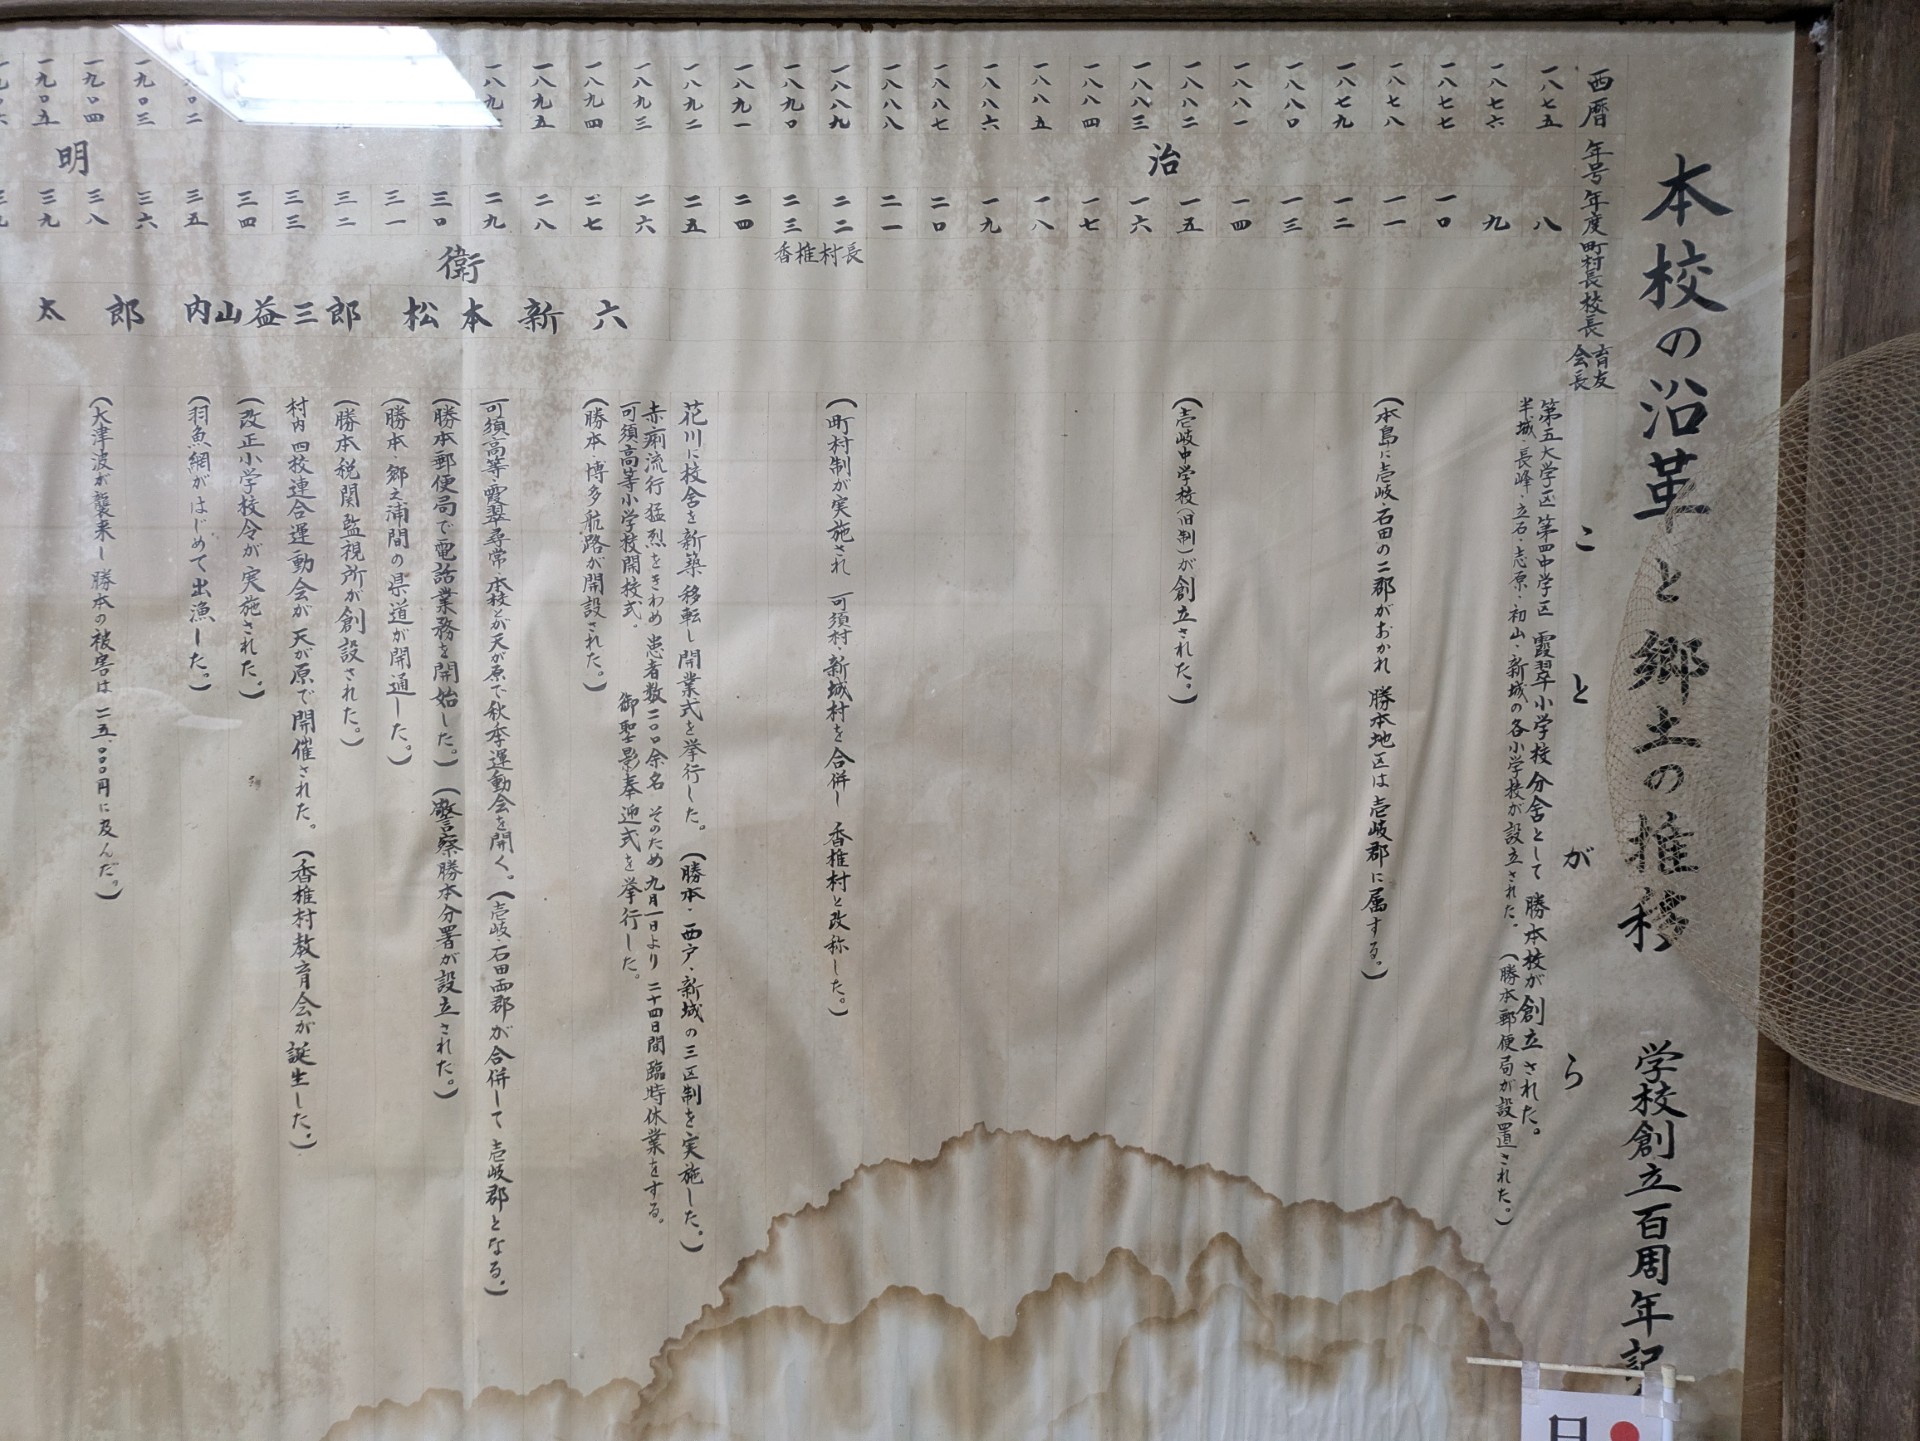 本校の沿革と郷土の推移　学校創立百周年記
西暦 年号 年度 町村長 校長 育友会長
ことがら
一八七五 八
第五大学区 第四中学区 霞翠小学校分舎として 勝本校が創立された。
半城・長峰・立石・志原・初山・新城の各小学校が設立された。（勝本郵便局が設置された。）
一八七六 九
一八七七 一〇
一八七八 一一
（本島に壱岐・石田の二郡がおかれ 勝本地区は壱岐郡に属する。）
一八七九 一二
一八八〇 一三
一八八一 一四
一八八二 一五
（壱岐中学校（旧制）が創立された。）
治
一八八三 一六
一八八四 一七
一八八五 一八
一八八六 一九
一八八七 二〇
一八八八 二一
一八八九 二二
香椎村長
（町村制が実施され 可須村・新城村を合併し 香椎村と改称した。）
一八九〇 二三
一八九一 二四
一八九二 二五
花川に校舎を新築 移転し開業式を挙行した。（勝本・西戸・新城の三区制を実施した。）
一八九三 二六
赤痢流行 猛烈をきわめ 患者数二〇〇余名 そのため九月一日より 二十四日間臨時休業をする。
可須高等小学校開校式。 御聖影奉迎式を挙行した。
一八九四 二七
（勝本・博多航路が開設された。）
一八九五 二八
二九
可須高等・霞翠尋常・本校とが天が原で秋季運動会を開く。（壱岐・石田両郡が合併して 壱岐郡となる。）
三〇
（勝本郵便局で電話業務を開始した。）（警察勝本分署が設立された。）
三一
（勝本・郷之浦間の県道が開通した。）
三二
（勝本税関監視所が創設された。）
三三
村内四校連合運動会が天が原で開催された。（香椎村教育会が誕生した。）
三四
（改正小学校令が実施された。）
三五
（羽魚網がはじめて出漁した。）
一九〇三 三六
一九〇四 三八
（大津波が襲来し勝本の被害は 二五、〇〇〇円に及んだ。）
一九〇五 三九
明
衛
松本新六
内山益三郎
郎
太
日